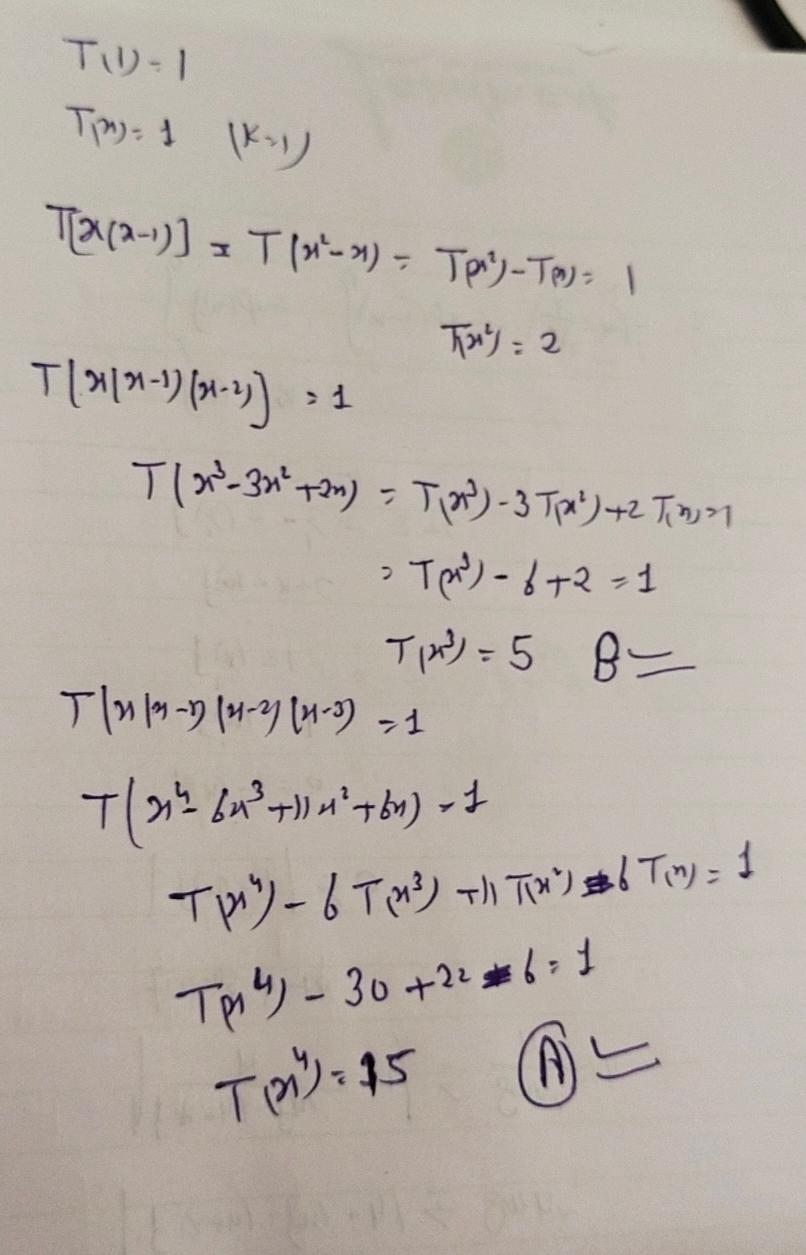 T(1) = 1
T(x) = 1 (K=1)
T[x(x-1)] = T(x²-x) = T(x²)-T(x) = 1
T(x²) = 2
T[x(x-1)(x-2)] = 1
T(x³-3x²+2x) = T(x³)-3T(x²)+2T(x)=1
= T(x³) - 6+2 = 1
T(x³) = 5 B
T(x(x-1)(x-2)(x-3) = 1
T(x⁴-6x³+11x²+6x) = 1
T(x⁴)-6T(x³)+11T(x²)-6T(x) = 1
T(x⁴) - 30+22-6 = 1
T(x⁴) = 15 A